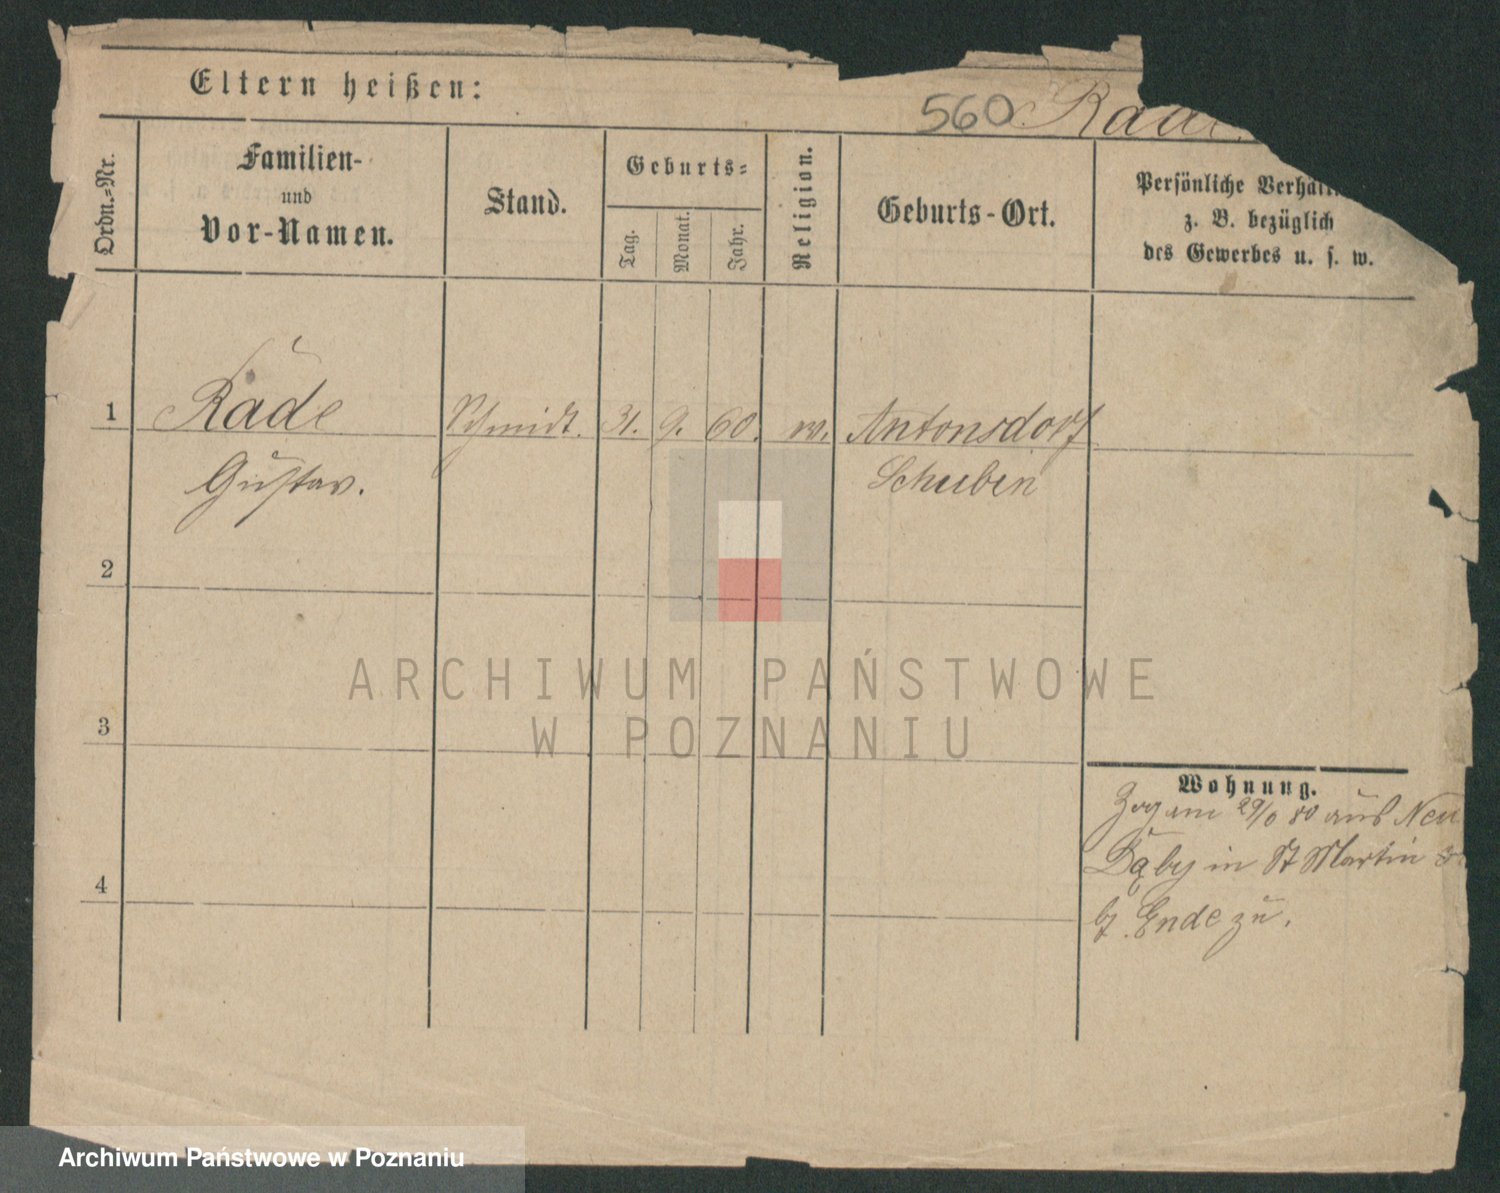 Eltern heißen:
560
Ordn.=Nr.
Familien-
und
Vor-Namen.
Stand.
Geburts=
Tag.
Monat.
Jahr.
Religion.
Geburts-Ort.
Persönliche
z. B. bezüglich
des Gewerbes u. s. w.
1 Räde Schmidt. 31. 9. 60. Antonsdorf
Gustav. Schubin
2
3
4
Wohnung.
Zog am 80 aus Neu
Dąby in St Martin
Ende zu.
ARCHIWUM PAŃSTWOWE
W POZNANIU
Archiwum Państwowe w Poznaniu